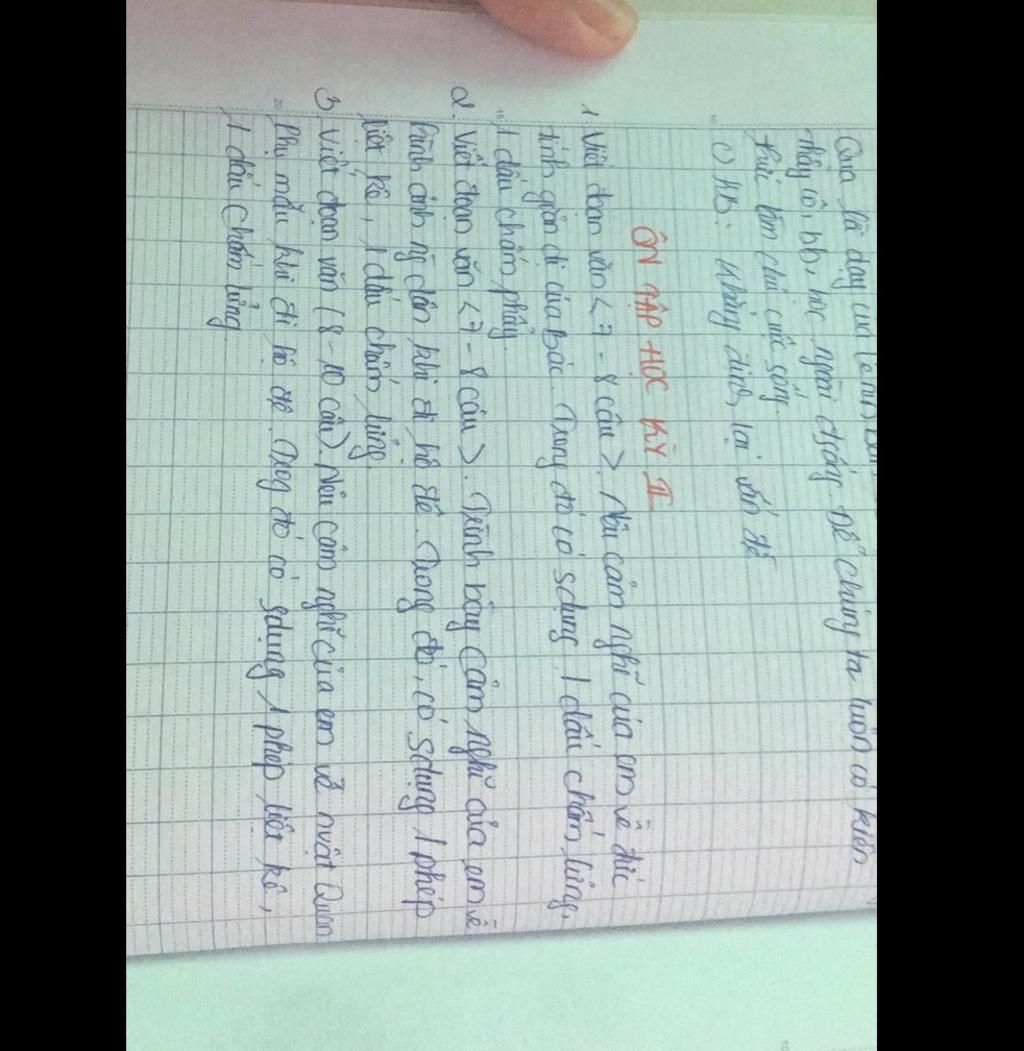 Qua lời dạy của Lê nin,
thầy cô, bb, học người đsống. Để chúng ta luôn có kiến
thức làm chủ cuộc sống.
c) KB: Khẳng định lại vấn đề
ÔN TẬP HỌC KỲ II
1 Viết đoạn văn < 7 - 8 câu >. Nêu cảm nghĩ của em về đức
tính giản dị của Bác. Trong đó có sdụng 1 dấu chấm lửng,
1 dấu chấm phẩy.
2. Viết đoạn văn < 7 - 8 câu >. Trình bày cảm nghĩ của em về
hình ảnh ng dân khi đi hộ đê. Trong đó, có sdụng 1 phép
liệt kê, 1 dấu chấm lửng.
3. Viết đoạn văn (8 - 10 câu). Nêu cảm nghĩ của em về nvật Quan
Phụ mẫu khi đi hộ đê. Trog đó có sdụng 1 phép liệt kê,
1 dấu chấm lửng.